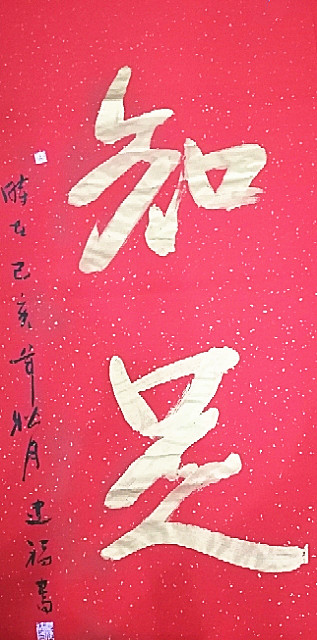 知足
時在己亥年秋月建福書